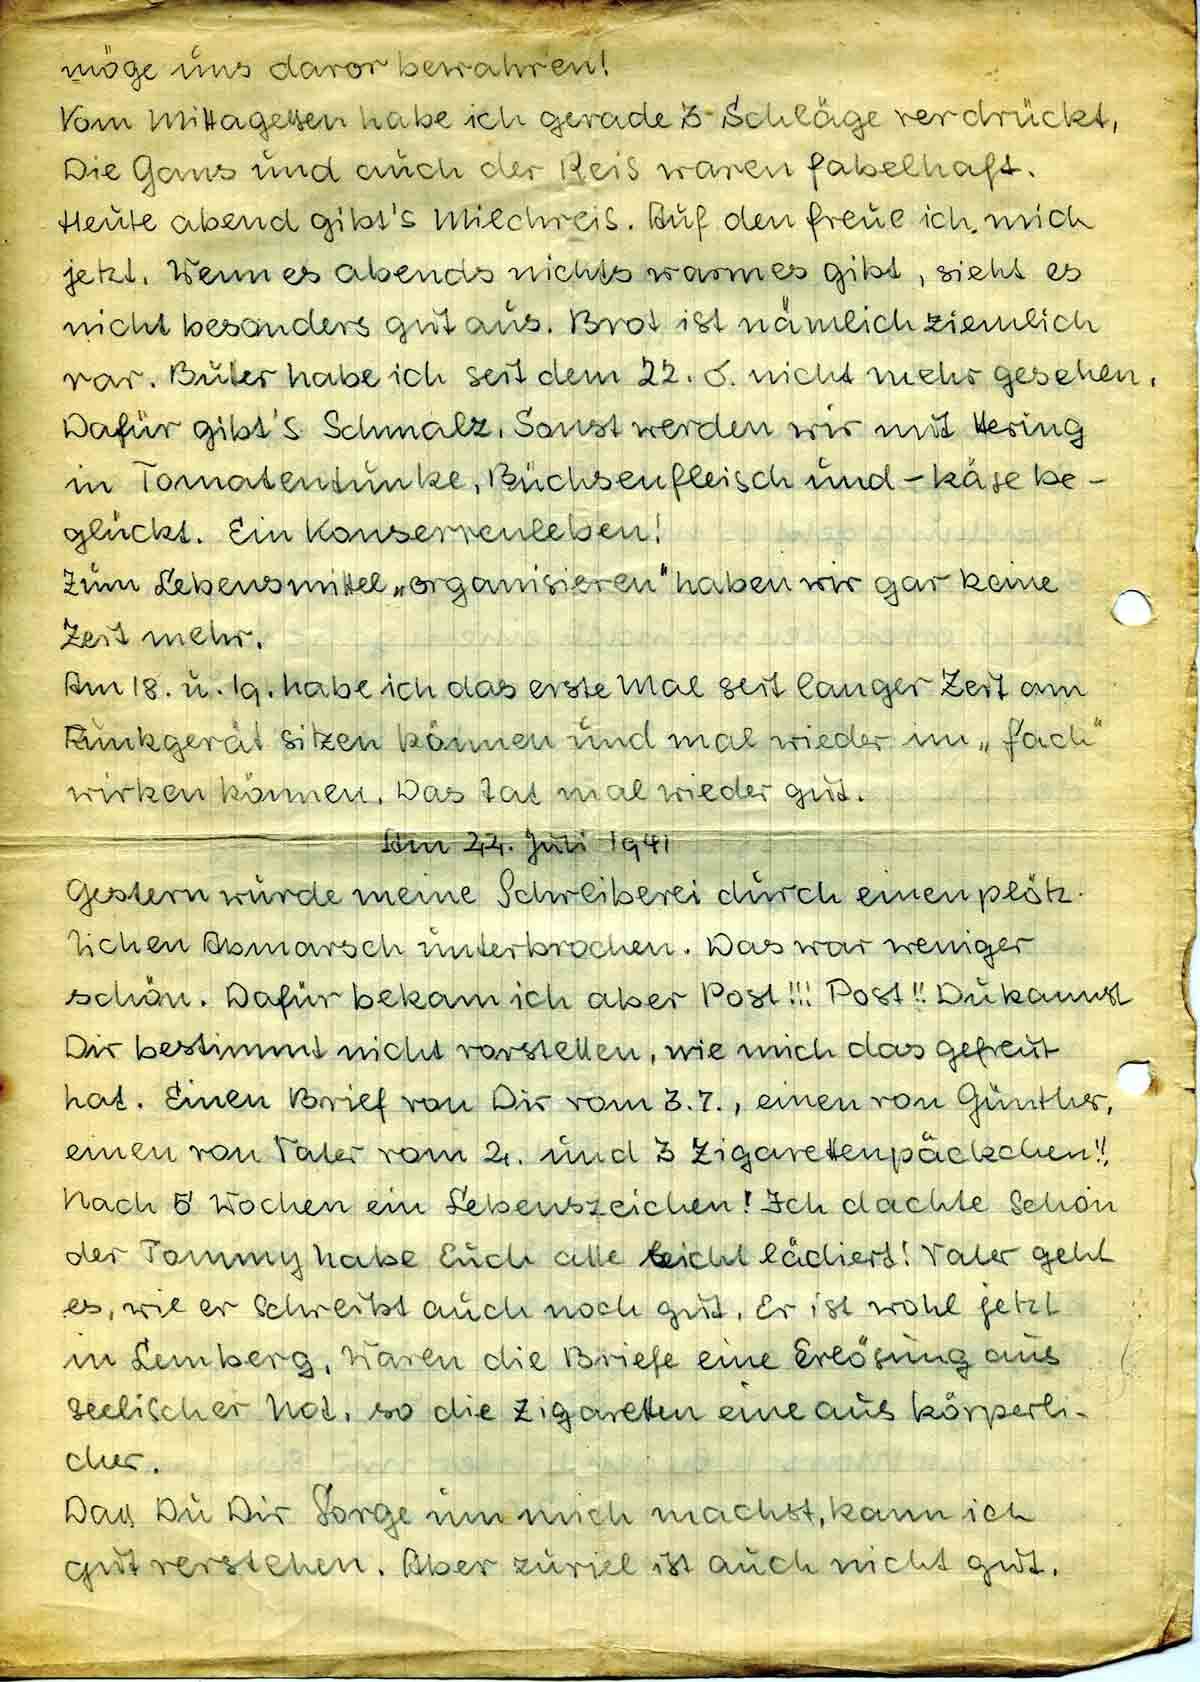 möge uns davor bewahren!
Vom Mittagessen habe ich gerade 3 Schläge verdrückt,
Die Gans und auch der Reis waren fabelhaft.
Heute abend gibt's Milchreis. Auf den freue ich mich
jetzt. Wenn es abends nichts warmes gibt, sieht es
nicht besonders gut aus. Brot ist nämlich ziemlich
rar. Butter habe ich seit dem 22. 6. nicht mehr gesehen.
Dafür gibt's Schmalz. Sonst werden wir mit Hering
in Tomatentunke, Büchsenfleisch und -käse be-
glückt. Ein Konservenleben!
Zum Lebensmittel „organisieren" haben wir gar keine
Zeit mehr.
Am 18. u. 19. habe ich das erste Mal seit langer Zeit am
Funkgerät sitzen können und mal wieder im „Fach"
wirken können. Das tat mal wieder gut.
Am 22. Juli 1941
Gestern wurde meine Schreiberei durch einen plötz-
lichen Abmarsch unterbrochen. Das war weniger
schön. Dafür bekam ich aber Post!!! Post!! Du kannst
Dir bestimmt nicht vorstellen, wie mich das gefreut
hat. Einen Brief von Dir vom 3.7., einen von Günther,
einen von Vater vom 2. und 3 Zigarettenpäckchen!!
Nach 5 Wochen ein Lebenszeichen! Ich dachte schon
der Tommy habe Euch alle leicht lädiert! Vater geht
es, wie er schreibt auch noch gut. Er ist wohl jetzt
in Lemberg. Waren die Briefe eine Erlösung aus
seelischer Not, so die Zigaretten eine aus körperli-
cher.
Daß Du Dir Sorge um mich machst, kann ich
gut verstehen. Aber zuviel ist auch nicht gut.